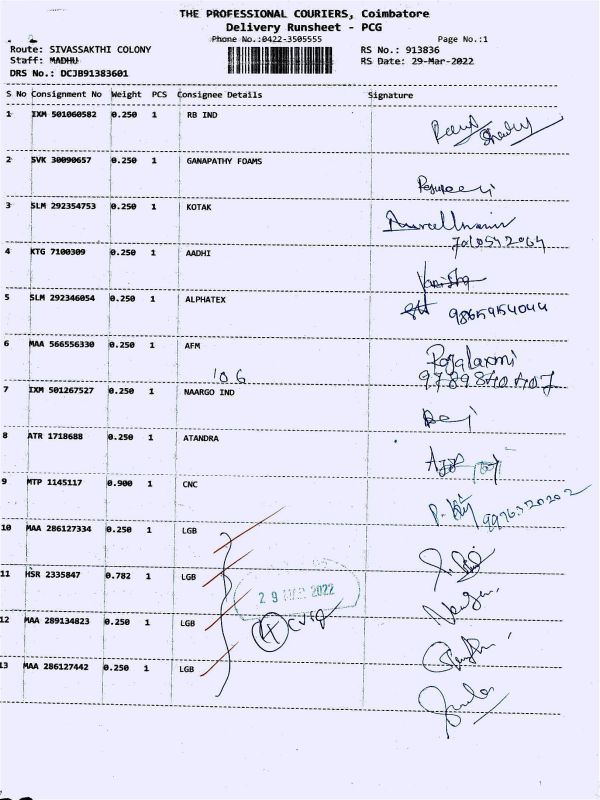 THE PROFESSIONAL COURIERS, Coimbatore
Delivery Runsheet - PCG
Phone No.:0422-3505555 Page No.:1
Route: SIVASSAKTHI COLONY RS No.: 913836
Staff: MADHU RS Date: 29-Mar-2022
DRS No.: DCJB91383601
S No Consignment No Weight PCS Consignee Details Signature
1 IXM 501060582 0.250 1 RB IND
2 SVK 30090657 0.250 1 GANAPATHY FOAMS
3 SLM 292354753 0.250 1 KOTAK
7010542064
4 KTG 7100309 0.250 1 AADHI
5 SLM 292346054 0.250 1 ALPHATEX
9865954044
6 MAA 566556330 0.250 1 AFM Rajalaxmi
106 9789840407
7 IXM 501267527 0.250 1 NAARGO IND
8 ATR 1718688 0.250 1 ATANDRA
9 MTP 1145117 0.900 1 CNC
9976320202
10 MAA 286127334 0.250 1 LGB
11 HSR 2335847 0.782 1 LGB
29 MAR 2022
12 MAA 289134823 0.250 1 LGB
4
13 MAA 286127442 0.250 1 LGB